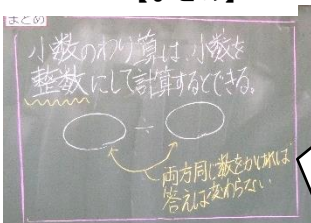 【まとめ】
まとめ
小数のわり算は、小数を
整数にして計算するとできる。
÷
両方同じ数をかければ
答えは変わらない